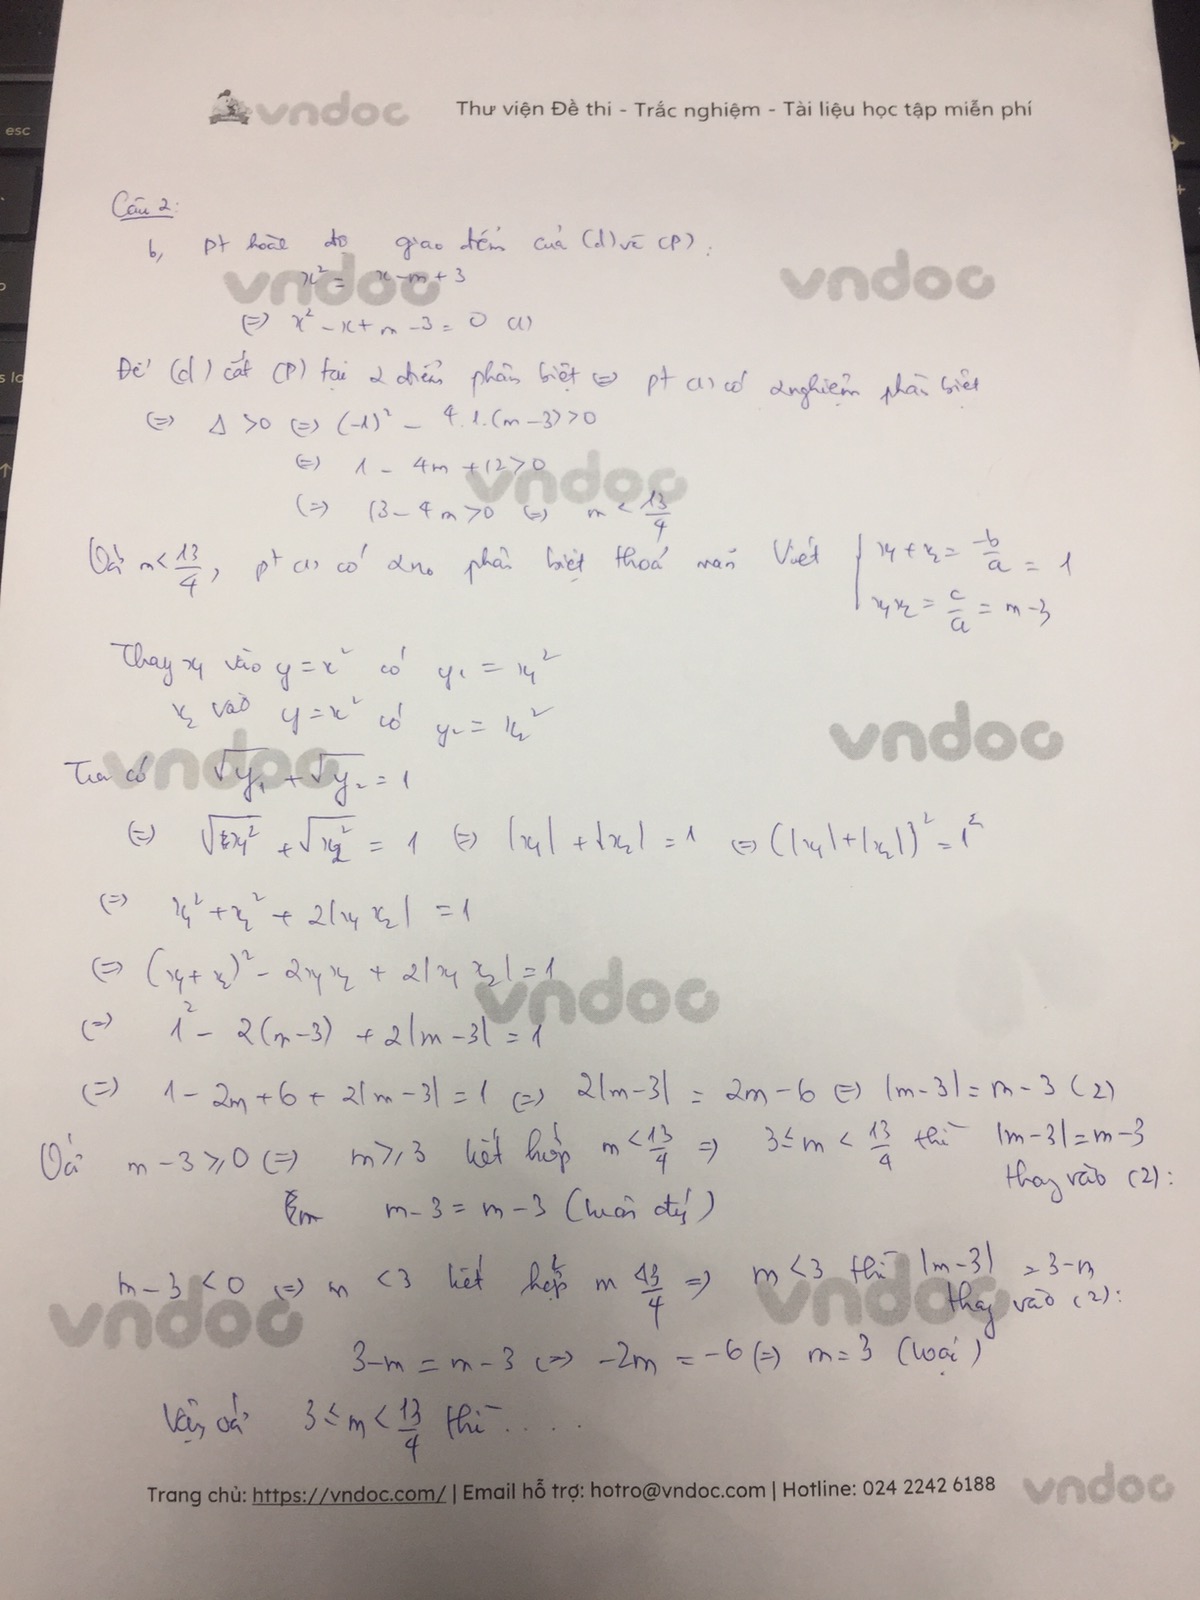 vndoc Thư viện Đề thi - Trắc nghiệm - Tài liệu học tập miễn phí
esc
Câu 2:
b, pt hoành độ giao điểm của (d) và (P):
vndoc vndoc
x² = x - m + 3
(=) x² - x + m - 3 = 0 (1)
Để (d) cắt (P) tại 2 điểm phân biệt (=) pt (1) có 2 nghiệm phân biệt
(=) Δ > 0 (=) (-1)² - 4.1.(m - 3) > 0
(=) 1 - 4m + 12 > 0
vndoc
(=) 13 - 4m > 0 (=) m < 13/4
Với m < 13/4, pt (1) có 2 no phân biệt thoả mãn Viét { x₁ + x₂ = -b/a = 1
x₁x₂ = c/a = m - 3
Thay x₁ vào y = x² có y₁ = x₁²
x₂ vào y = x² có y₂ = x₂²
vndoc vndoc
Ta có √y₁ + √y₂ = 1
(=) √x₁² + √x₂² = 1 (=) |x₁| + |x₂| = 1 (=) (|x₁| + |x₂|)² = 1²
(=) x₁² + x₂² + 2|x₁x₂| = 1
(=) (x₁ + x₂)² - 2x₁x₂ + 2|x₁x₂| = 1
vndoc
(=) 1² - 2(m - 3) + 2|m - 3| = 1
(=) 1 - 2m + 6 + 2|m - 3| = 1 (=) 2|m - 3| = 2m - 6 (=) |m - 3| = m - 3 (2)
Với m - 3 ≥ 0 (=) m ≥ 3 kết hợp m < 13/4 => 3 ≤ m < 13/4 thì |m - 3| = m - 3
thay vào (2):
m - 3 = m - 3 (luôn đg)
m - 3 < 0 (=) m < 3 kết hợp m < 13/4 => m < 3 thì |m - 3| = 3 - m
thay vào (2):
vndoc vndoc
3 - m = m - 3 (=) -2m = -6 (=) m = 3 (loại)
Vậy với 3 ≤ m < 13/4 thì . . . .
Trang chủ: https://vndoc.com/ | Email hỗ trợ: hotro@vndoc.com | Hotline: 024 2242 6188 vndoc